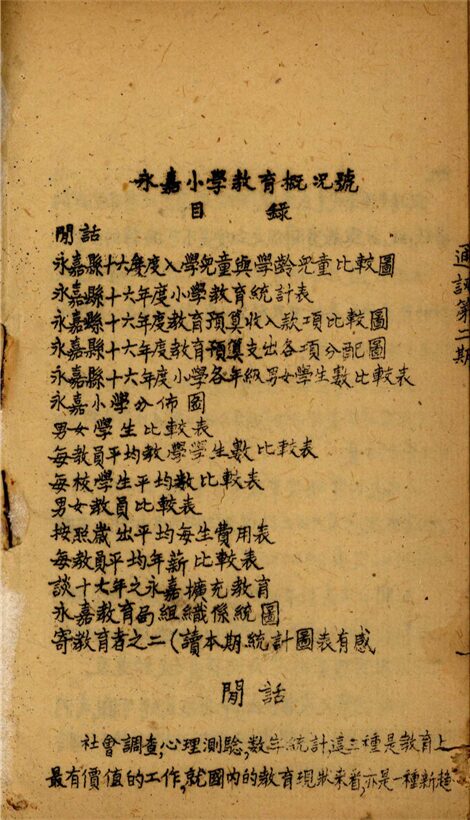 永嘉小學教育概况號
目 錄
閒話
永嘉縣十六年度入學兒童與學齡兒童比較圖
永嘉縣十六年度小學教育統計表
永嘉縣十六年度教育預算收入款項比較圖
永嘉縣十六年度教育預算支出各項分配圖
永嘉縣十六年度小學各年級男女學生數比較表
永嘉小學分佈圖
男女學生比較表
每教員平均教學學生數比較表
每校學生平均數比較表
男女教員比較表
按照歲出平均每生費用表
每教員平均年薪比較表
談十七年之永嘉擴充教育
永嘉教育局組織係統圖
寄教育者之二(讀本期統計圖表有感
閒話
社會調查,心理測驗,數字統計這三種是教育上
最有價值的工作,就國內的教育現狀來看,亦是一種新趨
通訊第二期